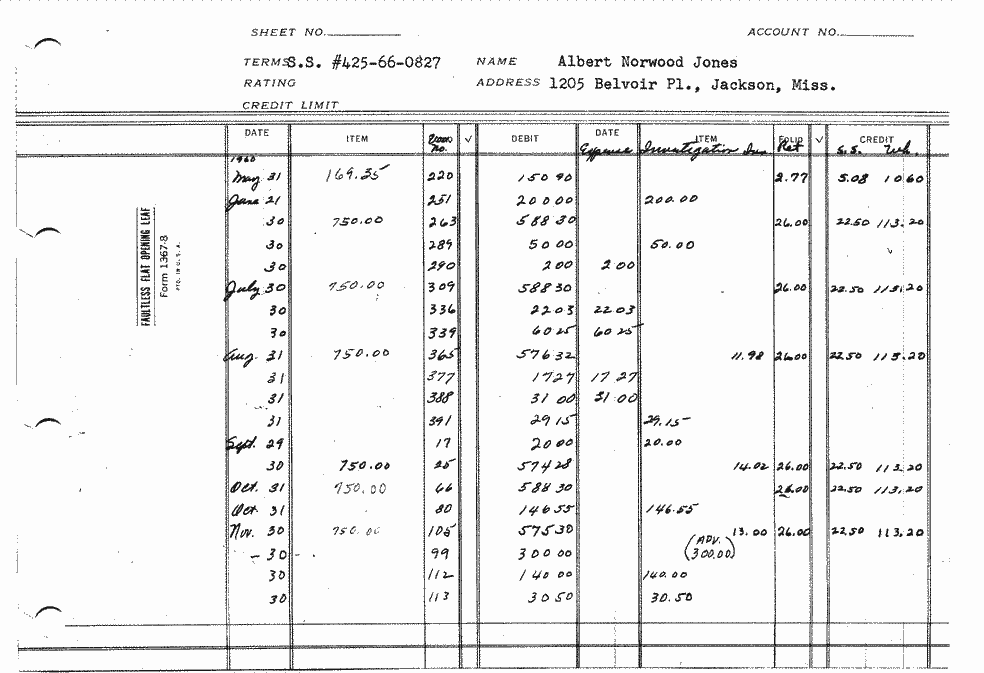 SHEET NO. ACCOUNT NO.
TERMS S.S. #425-66-0827 NAME Albert Norwood Jones
RATING ADDRESS 1205 Belvoir Pl., Jackson, Miss.
CREDIT LIMIT
DATE ITEM No. ✓ DEBIT DATE ITEM FOLIO ✓ CREDIT
Expense Investigation Ins. Ret S.S. Wh.
1960
May 31 169.35 220 150 90 2.77 5.08 10 60
June 21 251 200 00 200.00
30 750.00 263 588 30 26.00 22.50 113.20
30 289 50 00 50.00
30 290 2 00 2 00
July 30 750.00 309 588 30 26.00 22.50 113.20
30 336 22 03 22 03
30 339 60 25 60 25
Aug. 31 750.00 365 576 32 11.98 26.00 22.50 113.20
31 377 17 27 17 27
31 388 31 00 31 00
31 391 29 15 29.15
Sept. 29 17 20 00 20.00
30 750.00 25 574 28 14.02 26.00 22.50 113.20
Oct. 31 750.00 66 588 30 26.00 22.50 113.20
Oct 31 80 146 55 146.55
Nov. 30 750.00 105 575 30 13.00 26.00 22.50 113.20
- 30 - 99 300 00 (ADV. 300.00)
30 112 140 00 140.00
30 113 30 50 30.50
FAULTLESS FLAT OPENING LEAF
Form 1367-8
PTD. IN U.S.A.